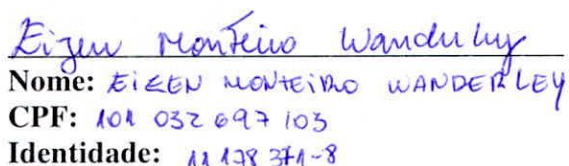 Eizen Monteiro Wanderley
Nome: EIZEN MONTEIRO WANDERLEY
CPF: 101 032 697 103
Identidade: 11 178 371-8